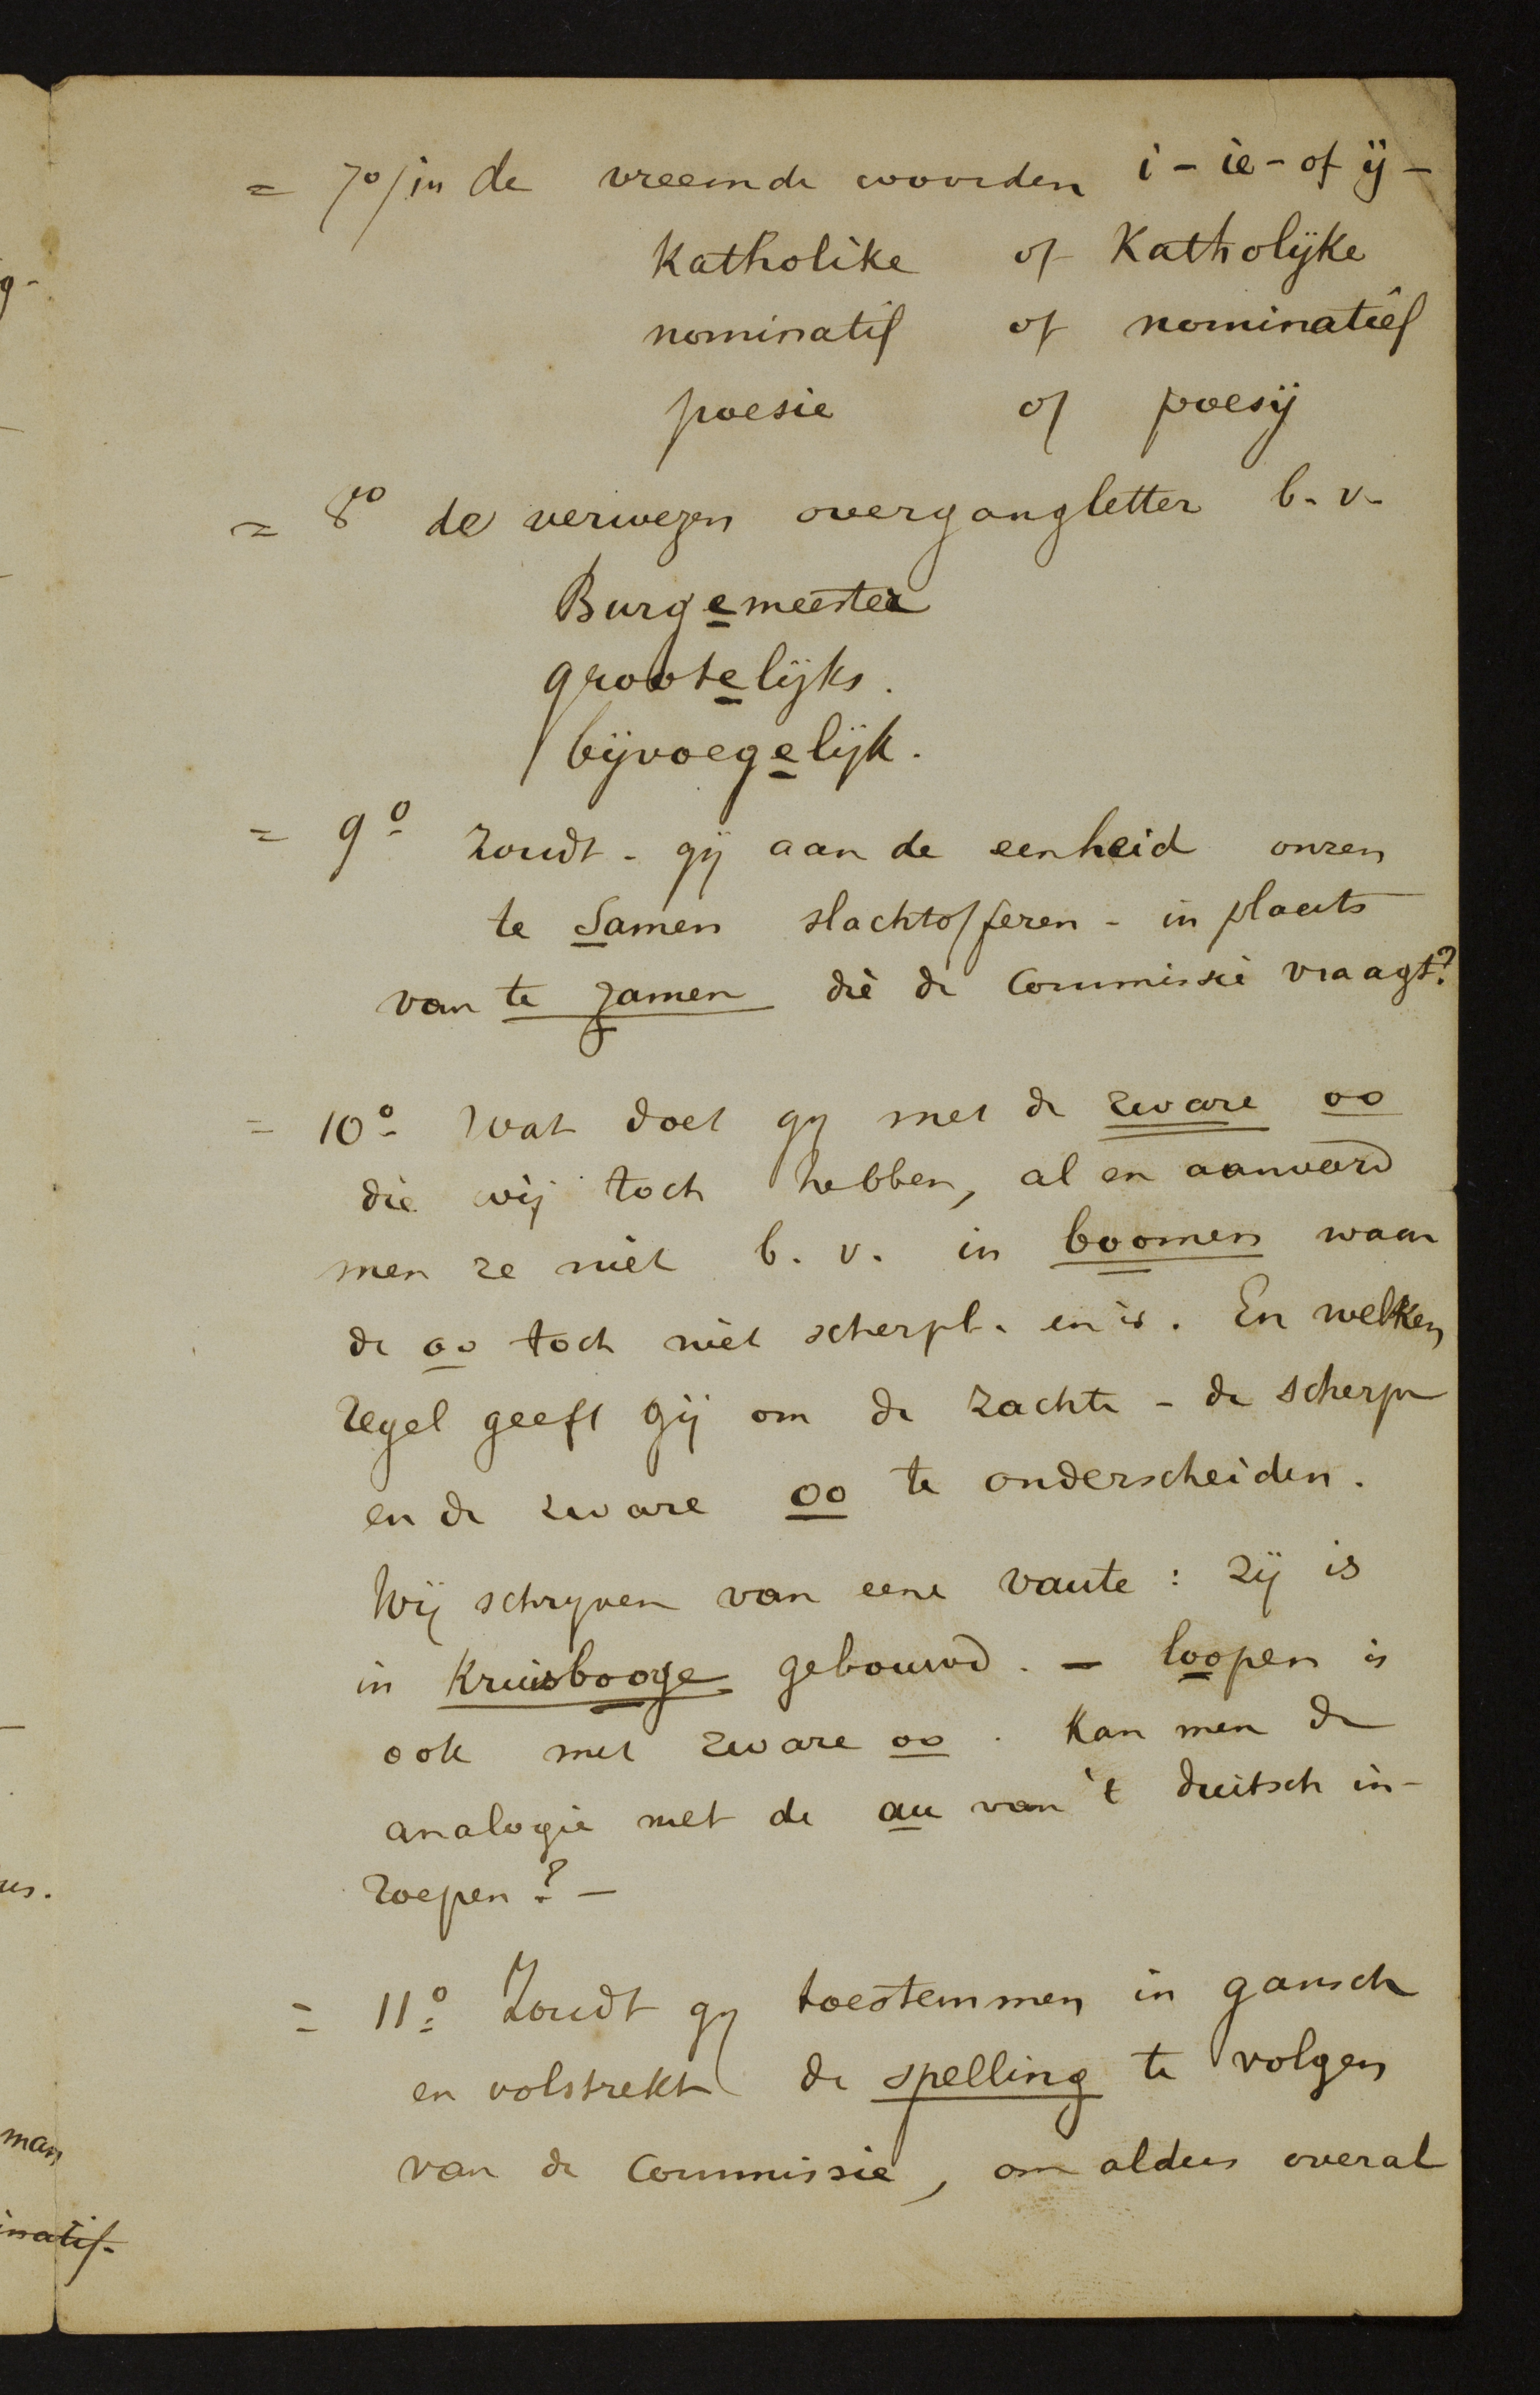 = 7o/ in de vreemde woorden i - ie - of ij -
Katholike of Katholijke
nominatif of nominatief
poesie of poesij
= 8o de verwezen overgangletter b. v.
Burgemeester
grootelijks.
bijvoegelijk.
= 9o Zoudt - gij aan de eenheid onzen
te Samen slachtofferen - in plaats
van te zamen die de Commissie vraagt?
= 10o Wat doet gij met de zware oo
die wij toch hebben, al en aanveerd
men ze niet b. v. in boomen waar
de oo toch niet scherpl. en is. En welken
regel geeft gij om de zachte - de scherpe
en de zware oo te onderscheiden.
Wij schrijven van eene vaute : zij is
in Kruisbooge gebouwd. - loopen is
ook met zware oo. Kan men de
analogie met de au van 't duitsch in-
roepen? -
= 11o Zoudt gij toestemmen in gansch
en volstrekt de spelling te volgen
van de Commissie, om aldus overal
g-
us.
man
inatif.